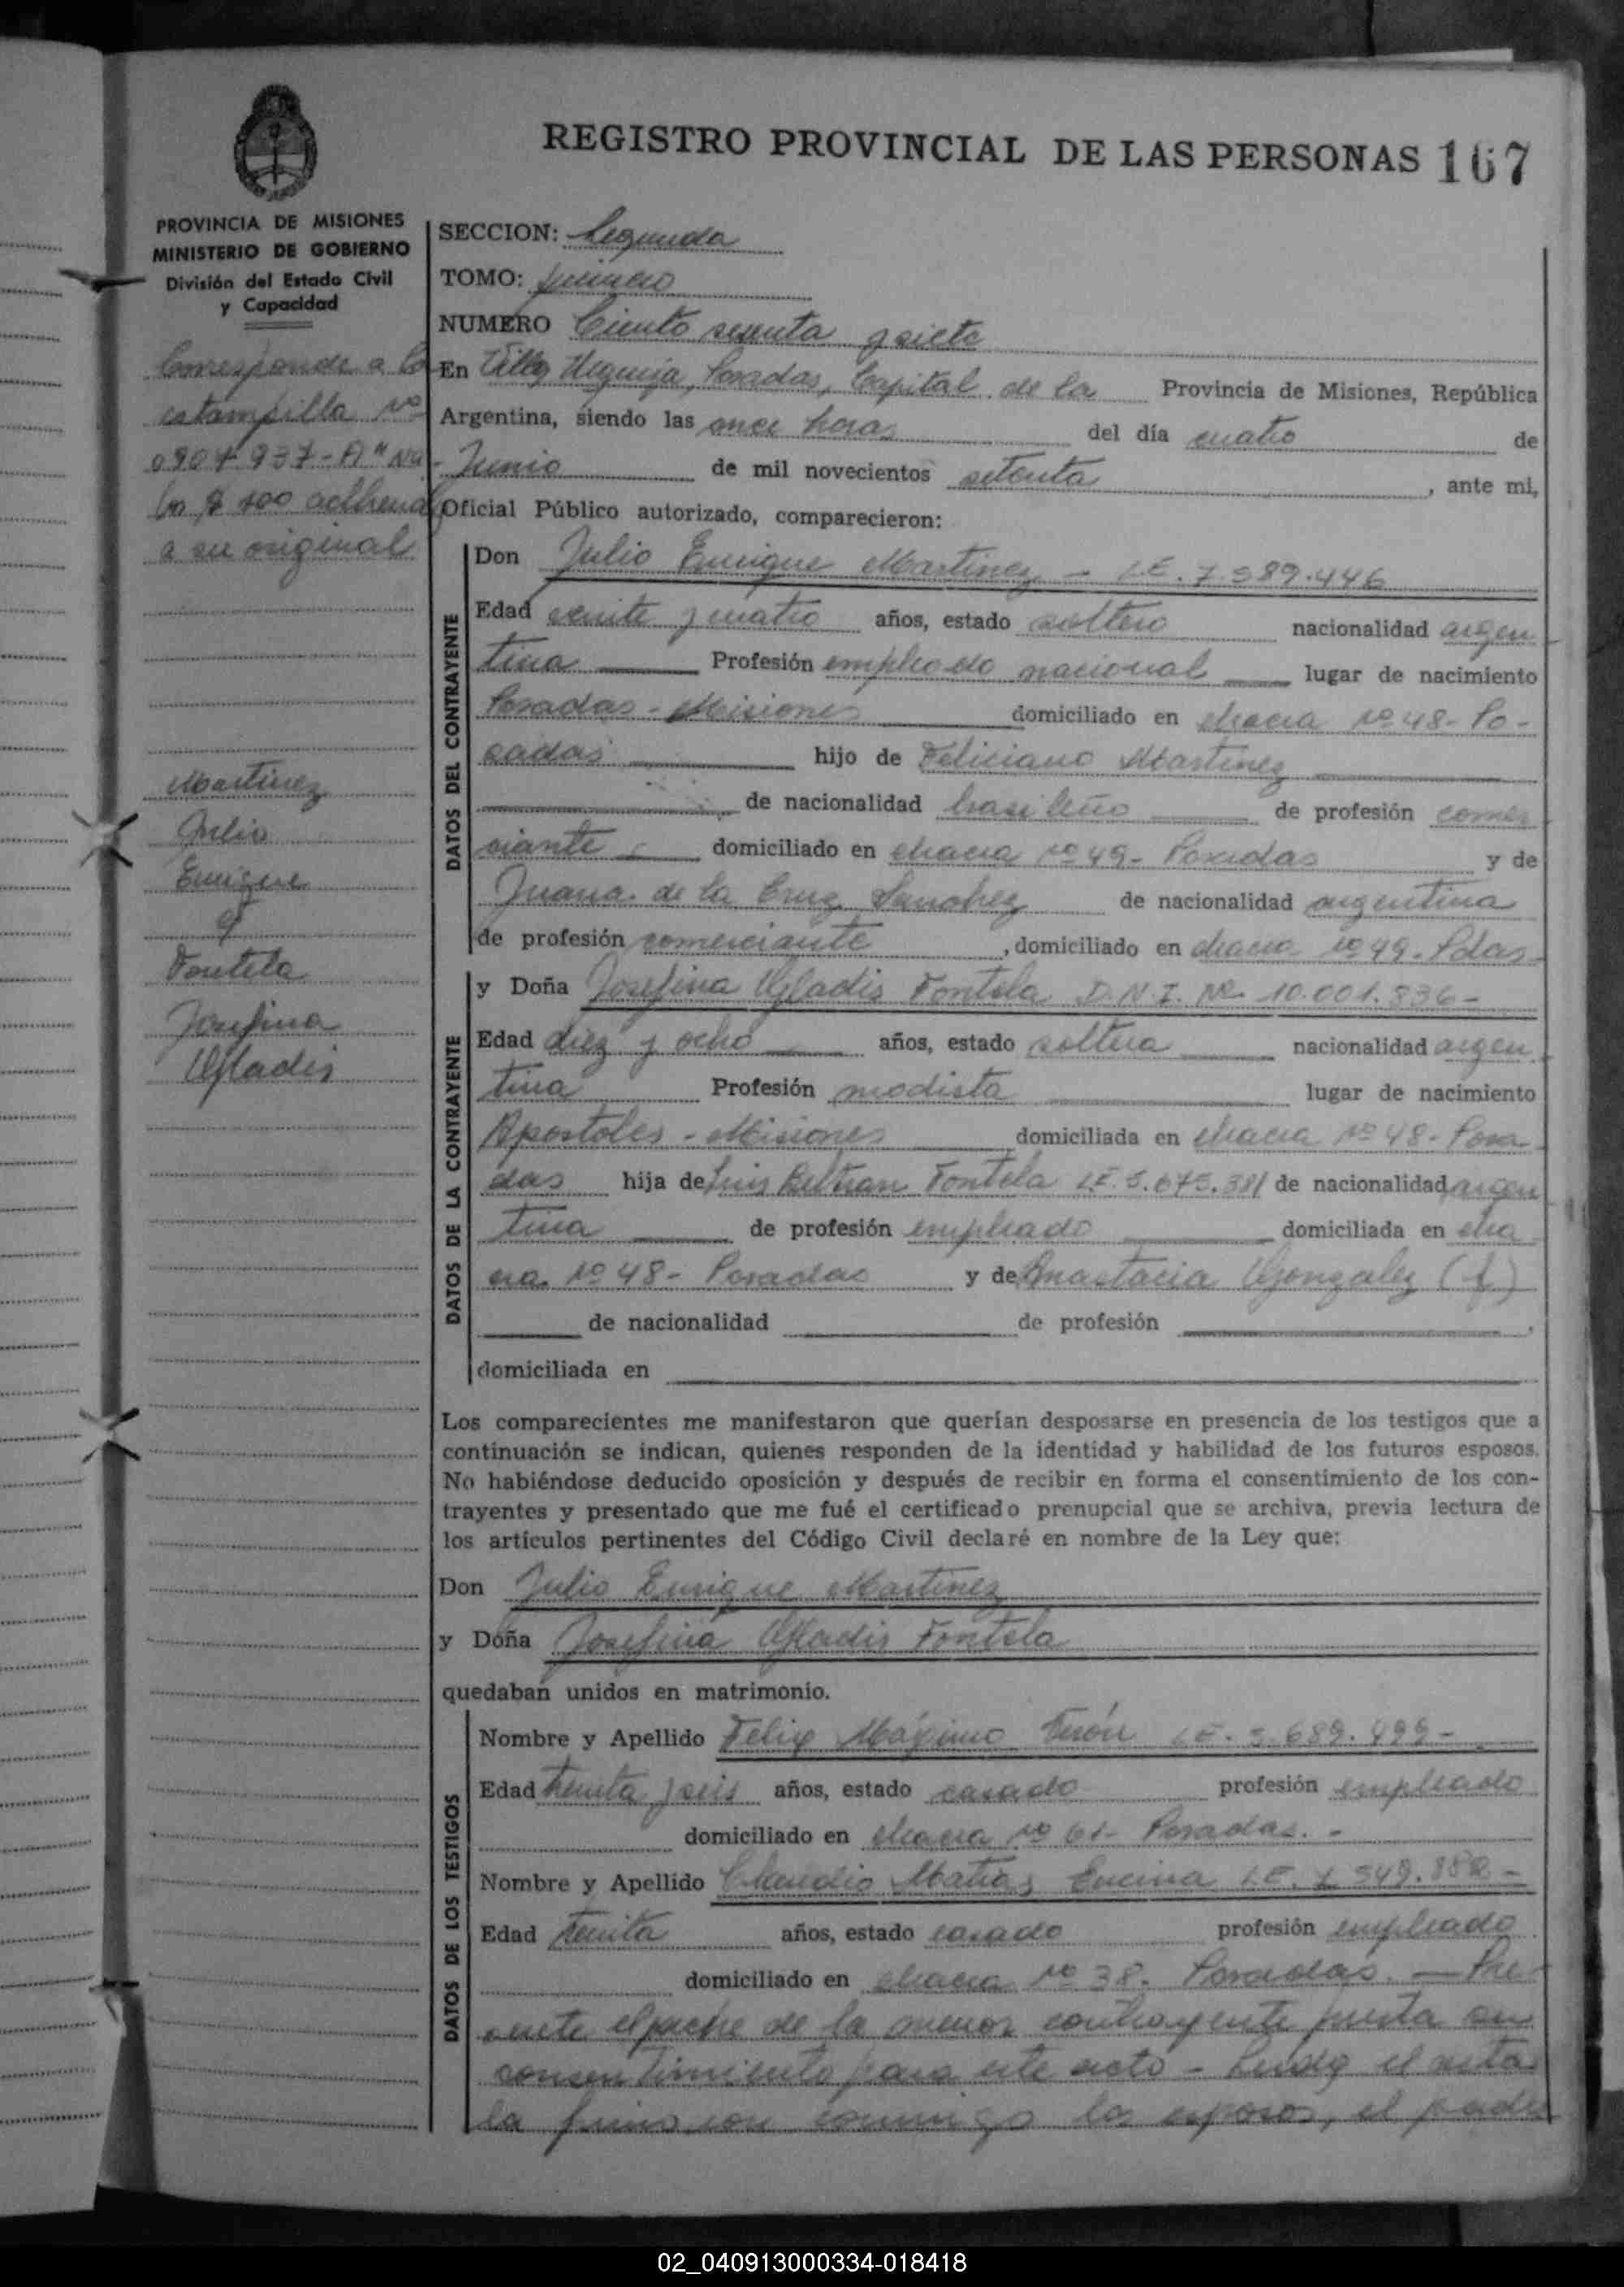 REGISTRO PROVINCIAL DE LAS PERSONAS 167
PROVINCIA DE MISIONES
MINISTERIO DE GOBIERNO
División del Estado Civil
y Capacidad
Corresponde a la
estampilla Nº
0904.937-A
$ 100
a su original
Martinez
Julio
Enrique
y
Fontela
Josefina
Gladis
SECCION: Segunda
TOMO: primero
NUMERO Ciento sesenta y siete
En Villa Urquiza, Posadas, Capital de la Provincia de Misiones, República
Argentina, siendo las once horas del día cuatro de
Junio de mil novecientos setenta, ante mi,
Oficial Público autorizado, comparecieron:
DATOS DEL CONTRAYENTE
Don Julio Enrique Martinez - L.E. 7.589.446
Edad veinte y cuatro años, estado soltero nacionalidad argen
tina Profesión empleado nacional lugar de nacimiento
Posadas - Misiones domiciliado en chacra Nº 48 - Po-
sadas hijo de Feliciano Martinez
de nacionalidad brasileño de profesión comer
ciante domiciliado en chacra Nº 49 - Posadas y de
Juana de la Cruz Sanchez de nacionalidad argentina
de profesión comerciante, domiciliado en chacra Nº 49 - Pdas-
DATOS DE LA CONTRAYENTE
y Doña Josefina Gladis Fontela D.N.I. Nº 10.001.836-
Edad diez y ocho años, estado soltera nacionalidad argen
tina Profesión modista lugar de nacimiento
Apostoles - Misiones domiciliada en chacra Nº 48 - Posa
das hija de Luis Beltran Fontela L.E. 5.675.381 de nacionalidad argen
tina de profesión empleado domiciliada en cha
cra Nº 48 - Posadas y de Anastacia Gonzalez (f)
de nacionalidad de profesión ,
domiciliada en
Los comparecientes me manifestaron que querían desposarse en presencia de los testigos que a
continuación se indican, quienes responden de la identidad y habilidad de los futuros esposos.
No habiéndose deducido oposición y después de recibir en forma el consentimiento de los con-
trayentes y presentado que me fué el certificado prenupcial que se archiva, previa lectura de
los artículos pertinentes del Código Civil declaré en nombre de la Ley que:
Don Julio Enrique Martinez
y Doña Josefina Gladis Fontela
quedaban unidos en matrimonio.
DATOS DE LOS TESTIGOS
Nombre y Apellido Felix Máximo L.E. 5.689.499-
Edad treinta y seis años, estado casado profesión empleado
domiciliado en chacra Nº 61 - Posadas. -
Nombre y Apellido Claudio Matias Encina L.E. 7.549.882-
Edad treinta años, estado casado profesión empleado
domiciliado en chacra Nº 38. Posadas. - Pre-
sente el padre de la menor contrayente presta su
consentimiento para este acto - Leida el acta
la firman conmigo los esposos, el padre
02_040913000334-018418